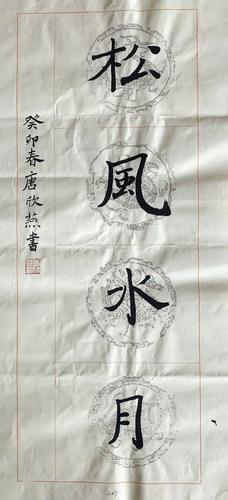 松風水月
癸卯春唐欣燕書
207